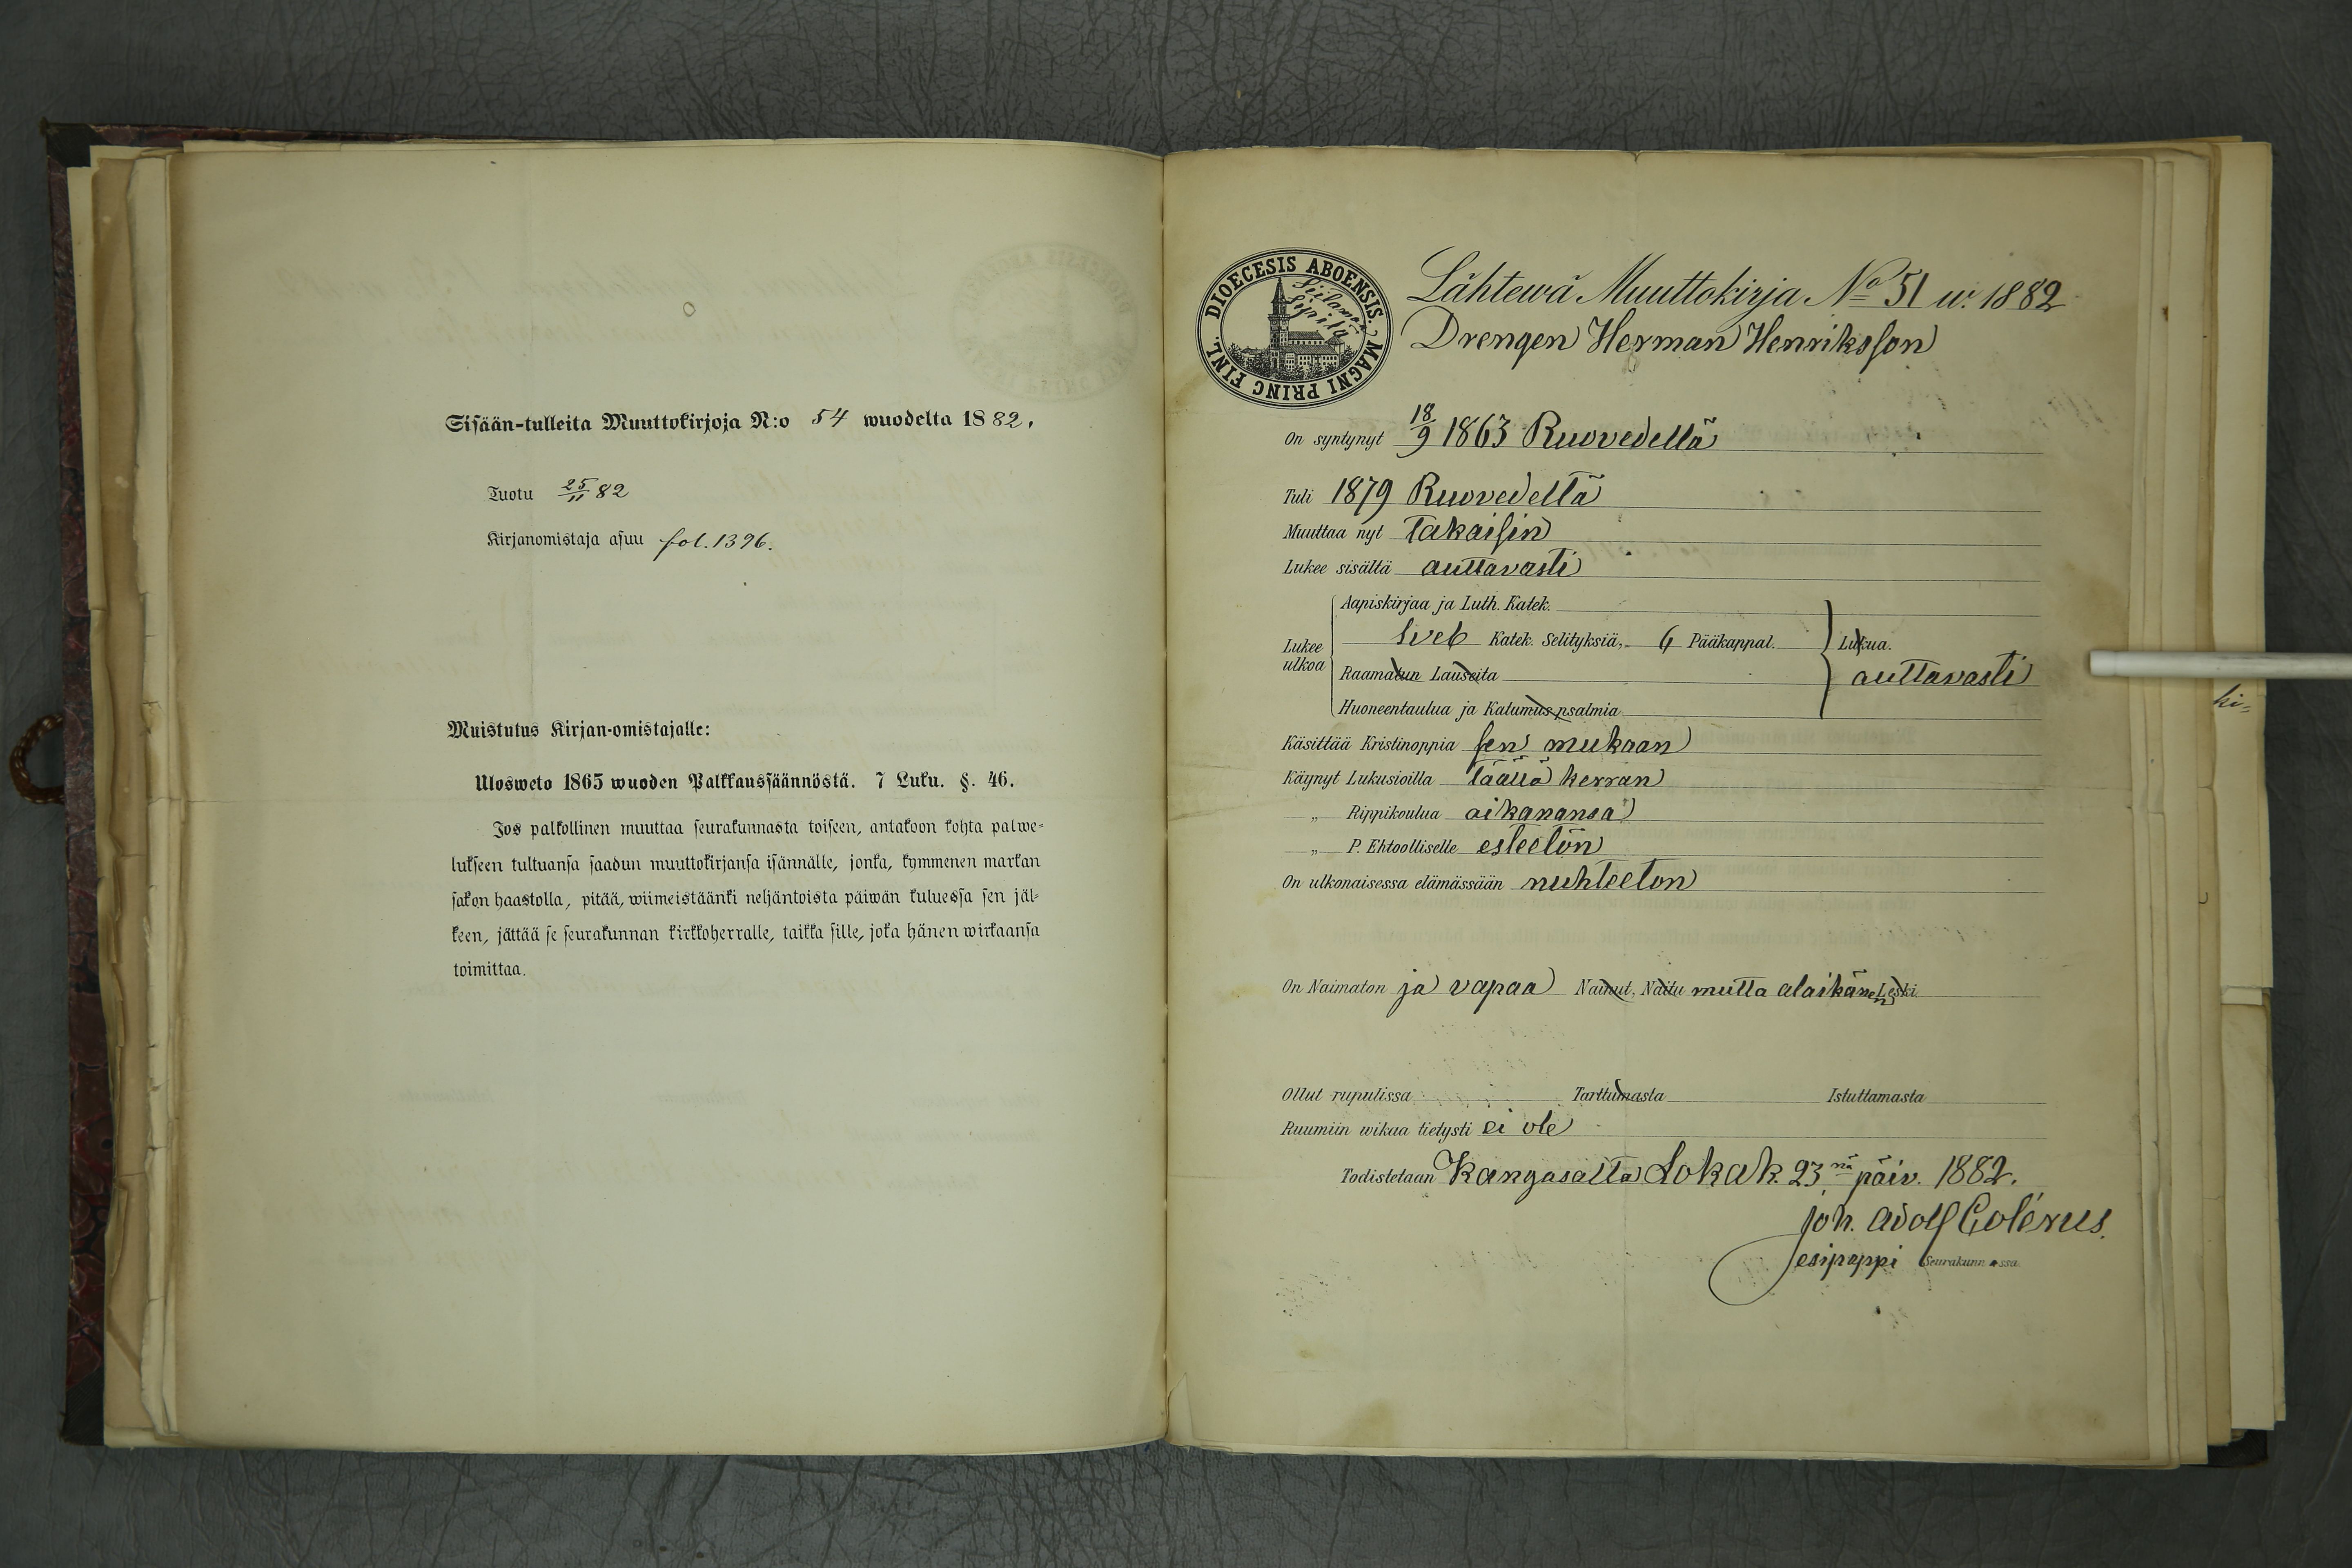 Sisään-tulleita Muuttokirjoja N:o 54 wuodelta 1882.
Tuotu 25/11 82
Kirjanomistaja asuu fol. 1396.
Muistutus Kirjan-omistajalle:
Ulosweto 1865 wuoden Palkkaussäännöstä. 7 Luku. §. 46.
Jos palkollinen muuttaa seurakunnasta toiseen, antakoon kohta palwe-
lukseen tultuansa saadun muuttokirjansa isännälle, jonka, kymmenen markan
sakon haastolla, pitää, wiimeistäänki neljäntoista päiwän kuluessa sen jäl-
keen, jättää se seurakunnan kirkkoherralle, taikka sille, joka hänen wirkaansa
toimittaa.
DIOECESIS ABOENSIS. MAGNI PRINC FINL.
Lähtewä Muuttokirja No 51 w. 1882
Drengen Herman Henriksson
On syntynyt 18/9 1863 Ruovedellä
Tuli 1879 Ruovedeltä
Muuttaa nyt takaisin
Lukee sisältä auttavasti
Aapiskirjaa ja Luth. Katek.
Lukee ulkoa Sveb Katek. Selityksiä, 6 Pääkappal. Lukua.
Raamatun Lauseita auttavasti
Huoneentaulua ja Katumus psalmia
Käsittää Kristinoppia sen mukaan
Käynyt Lukusioilla täällä kerran
„ Rippikoulua aikanansa
„ P. Ehtoolliselle esteetön
On ulkonaisessa elämässään nuhteeton
On Naimaton ja vapaa Nainut, Naitu mutta alaikänen Leski
Ollut rupulissa Tarttumasta Istuttamasta
Ruumiin wikaa tietysti ei ole
Todistetaan Kangasalta Lokak. 23nä päiv. 1882.
Joh. Adolf Colérus.
esipappi Seurakunnassa
ki=